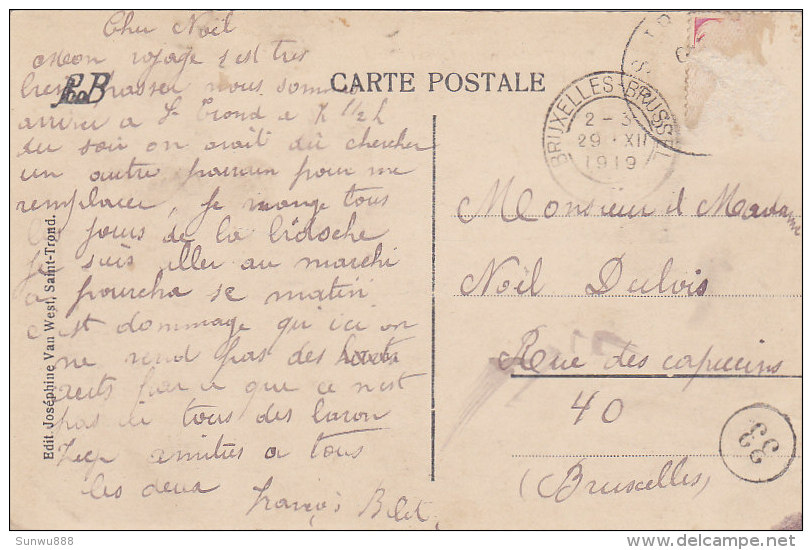 Cher Noël
Mon voyage s'est très
bien passer nous somm
arriver a St Trond a 7 1/2 h
du soir on avait dû chercher
un autre parrain pour me
remplacer, Je mange tous
les jours de la bidoche
Je suis aller au marchi
a pourcha se matin
c'est dommage qu'ici on
ne vend pas des
par a que ce n'est
pas de tous des baron
amities a tous
les deux
françois
Edit. Joséphine Van West, Saint-Trond.
CARTE POSTALE
BRUXELLES-BRUSSEL
2 - 3
29 XII
1919
Monsieur et Madame
Noël Dubois
Rue des capucins
40
(Bruxelles)
33
Sunwu888
delcampe.net